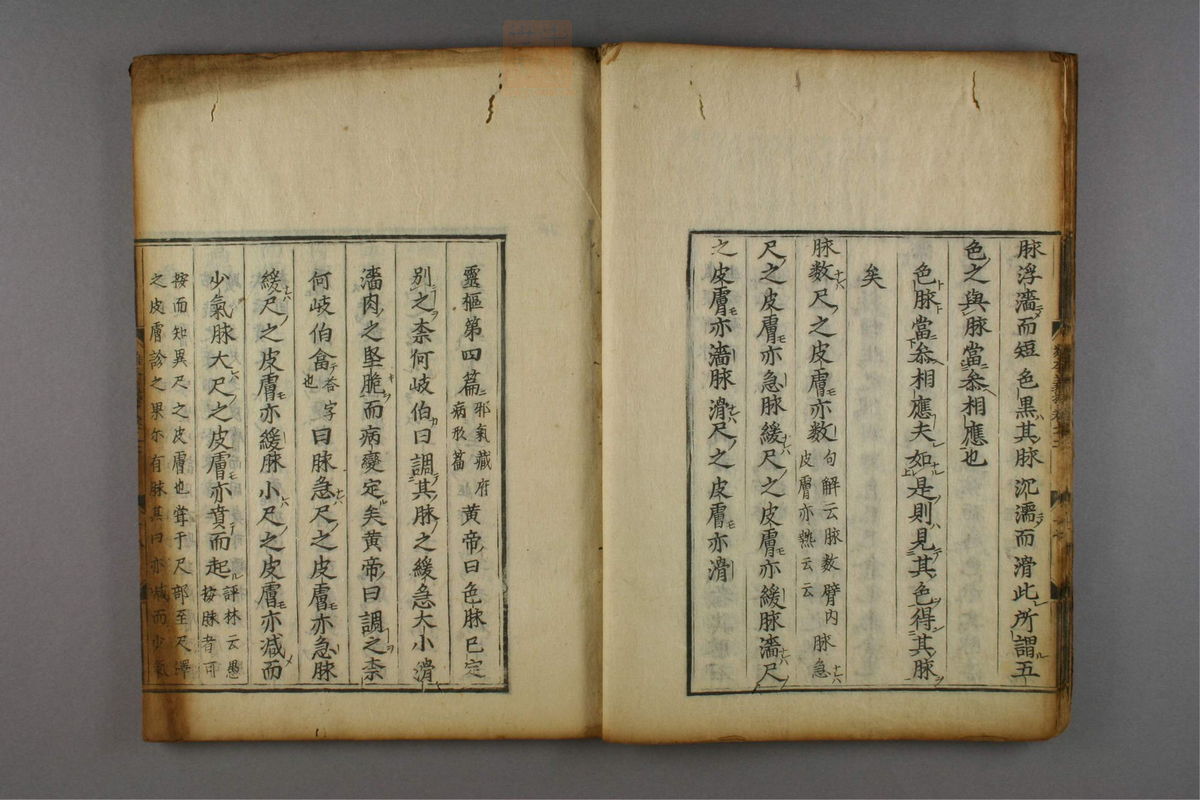 脉浮濇而短色黒其脉沉濡而滑此所謂五
色之與脉當叅相應也
色脉當叅相應夫如是則見其色得其脉
矣
脉数尺之皮膚亦数句解云脉数臂内脉急
皮膚亦熱云云
尺之皮膚亦急脉緩尺之皮膚亦緩脉濇尺
之皮膚亦濇脉滑尺之皮膚亦滑
靈樞第四篇邪氣藏府
病形篇
黄帝曰色脉已定
別之柰何岐伯曰調其脉之緩急大小滑
濇肉之堅脆而病變定矣黄帝曰調之柰
何岐伯畣答字
也
曰脉急尺之皮膚亦急脉
緩尺之皮膚亦緩脉小尺之皮膚亦减而
少氣脉大尺之皮膚亦賁而起評林云愚
按脉者可
按而知異尺之皮膚也葺于尺部至尺澤
之皮膚診之果亦有脉其曰亦减而少氣